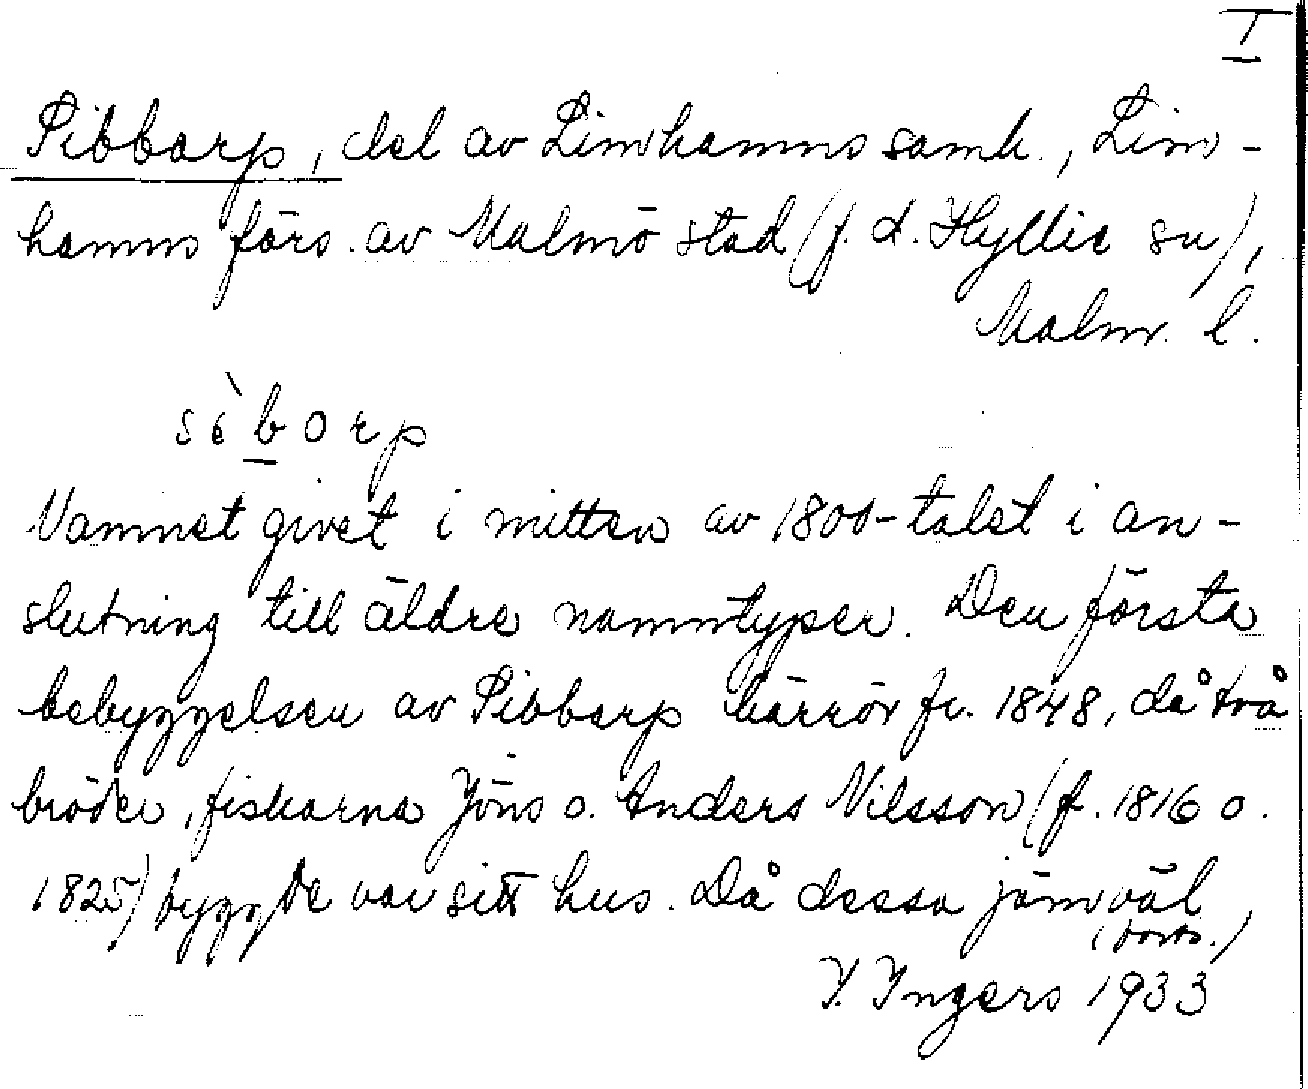 I
Sibbarp, del av Limhamns samh., Lim-
hamns förs. av Malmö stad (f. d. Hyllie sn),
Malm. l.
sèborp
Namnet givet i mitten av 1800-talet i an-
slutning till äldre namntyper. Den första
bebyggelsen av Sibbarp härrör fr. 1848, då två
bröder, fiskarna Jöns o. Anders Nilsson (f. 1816 o.
1825) byggde var sitt hus. Då dessa jämväl
(forts.)
I. Ingers 1933